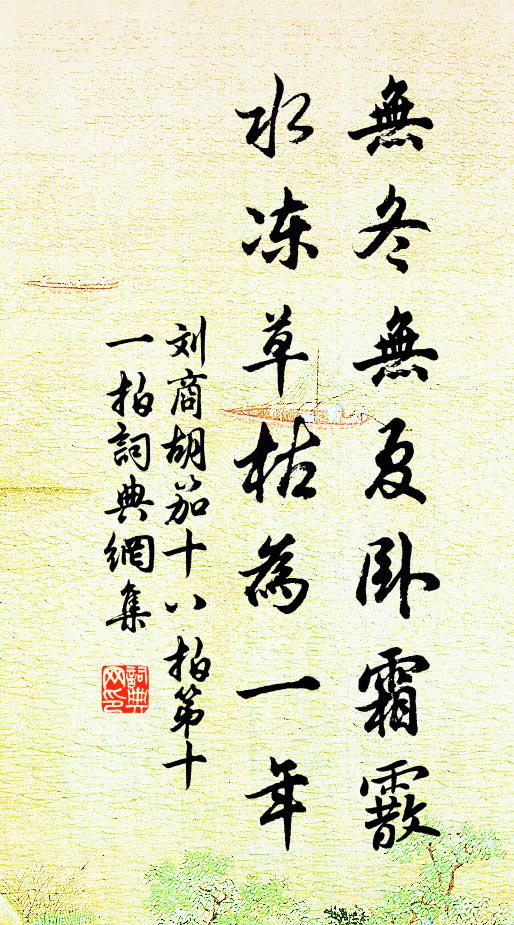 無冬無夏卧霜霰
水冻草枯為一年
刘商胡笳十八拍第十
一拍詞典網集
詞典
网印